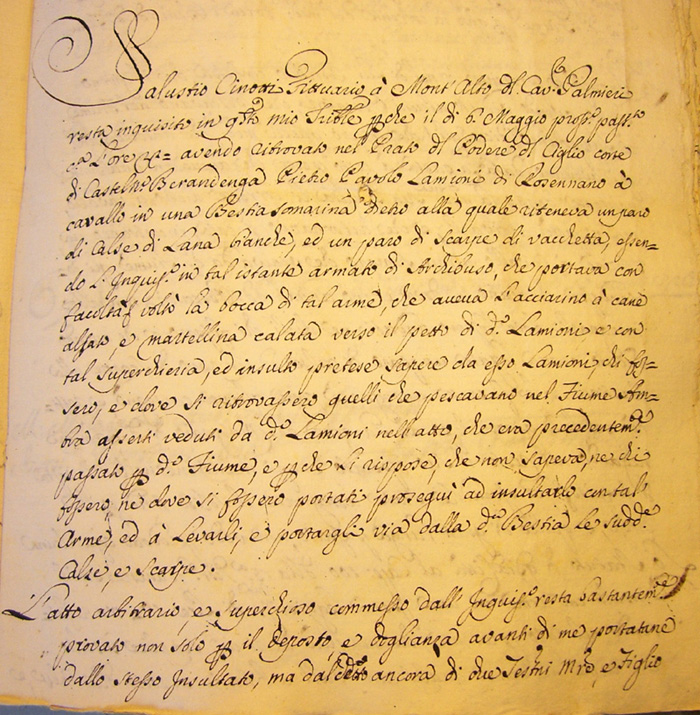 Salustio Cinotti Fittuario à Mont'Alto dl Cav:re Palmieri
resta inquisito in q.sto mio Trib.le p che il dì 6. Maggio pross.o pass.to
c.a l'ore = avendo ritrovato nel Prato dl Podere dl Ciglio corte
di Casteln.o Berandenga Pietro Pavolo Lamioni di Rosennano à
cavallo in una Bestia somarina dietro alla quale riteneva un paro
di Calse di Lana bianche, ed un paro di scarpe di vacchetta, essen=
do l'Inquis.o in tal istante armato di Archibuso, che portava con
facoltà voltò la bocca di tal arme, che aveva l'acciarino à cane
alsato, e martellina calata verso il petto di d.o Lamioni e con
tal superchieria, ed insulto pretese sapere da esso Lamioni, chi fos=
sero, e dove si ritrovassero quelli che pescavano nel Fiume Am=
bra asserti veduti da d.o Lamioni nell'atto, che era precedentem.e
passato p d.o Fiume, e p che li rispose, che non sapeva, ne chi
fossero, ne dove si fossero portati proseguì ad insultarlo con tal'
Arme, ed à Levarli, e portargli via dalla d.a Bestia le sudd.e
Calse, e scarpe.
L'atto arbitrario, e superchioso commesso dall'Inquis.o resta bastantem.e
provato non solo p il deposto, e doglianza avanti di me portatane
dallo stesso Insultato, ma dal detto ancora di due Testni M.re, e Figlio